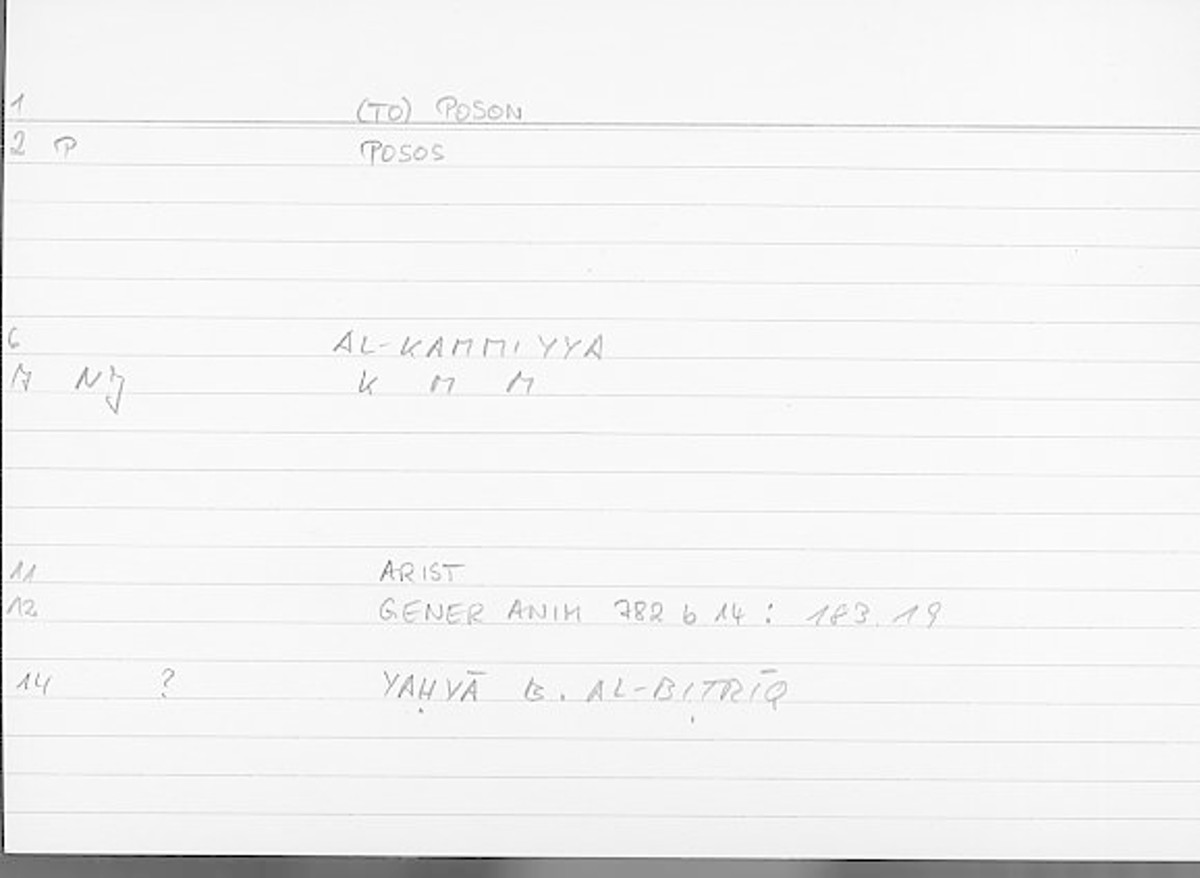 1 (TO) POSON
2 P POSOS
6 AL-KAMMIYYA
7 NJ K M M
11 ARIST
12 GENER ANIM 782 b 14 : 183.19
14 ? YAḤYĀ B. AL-BIṬRĪQ